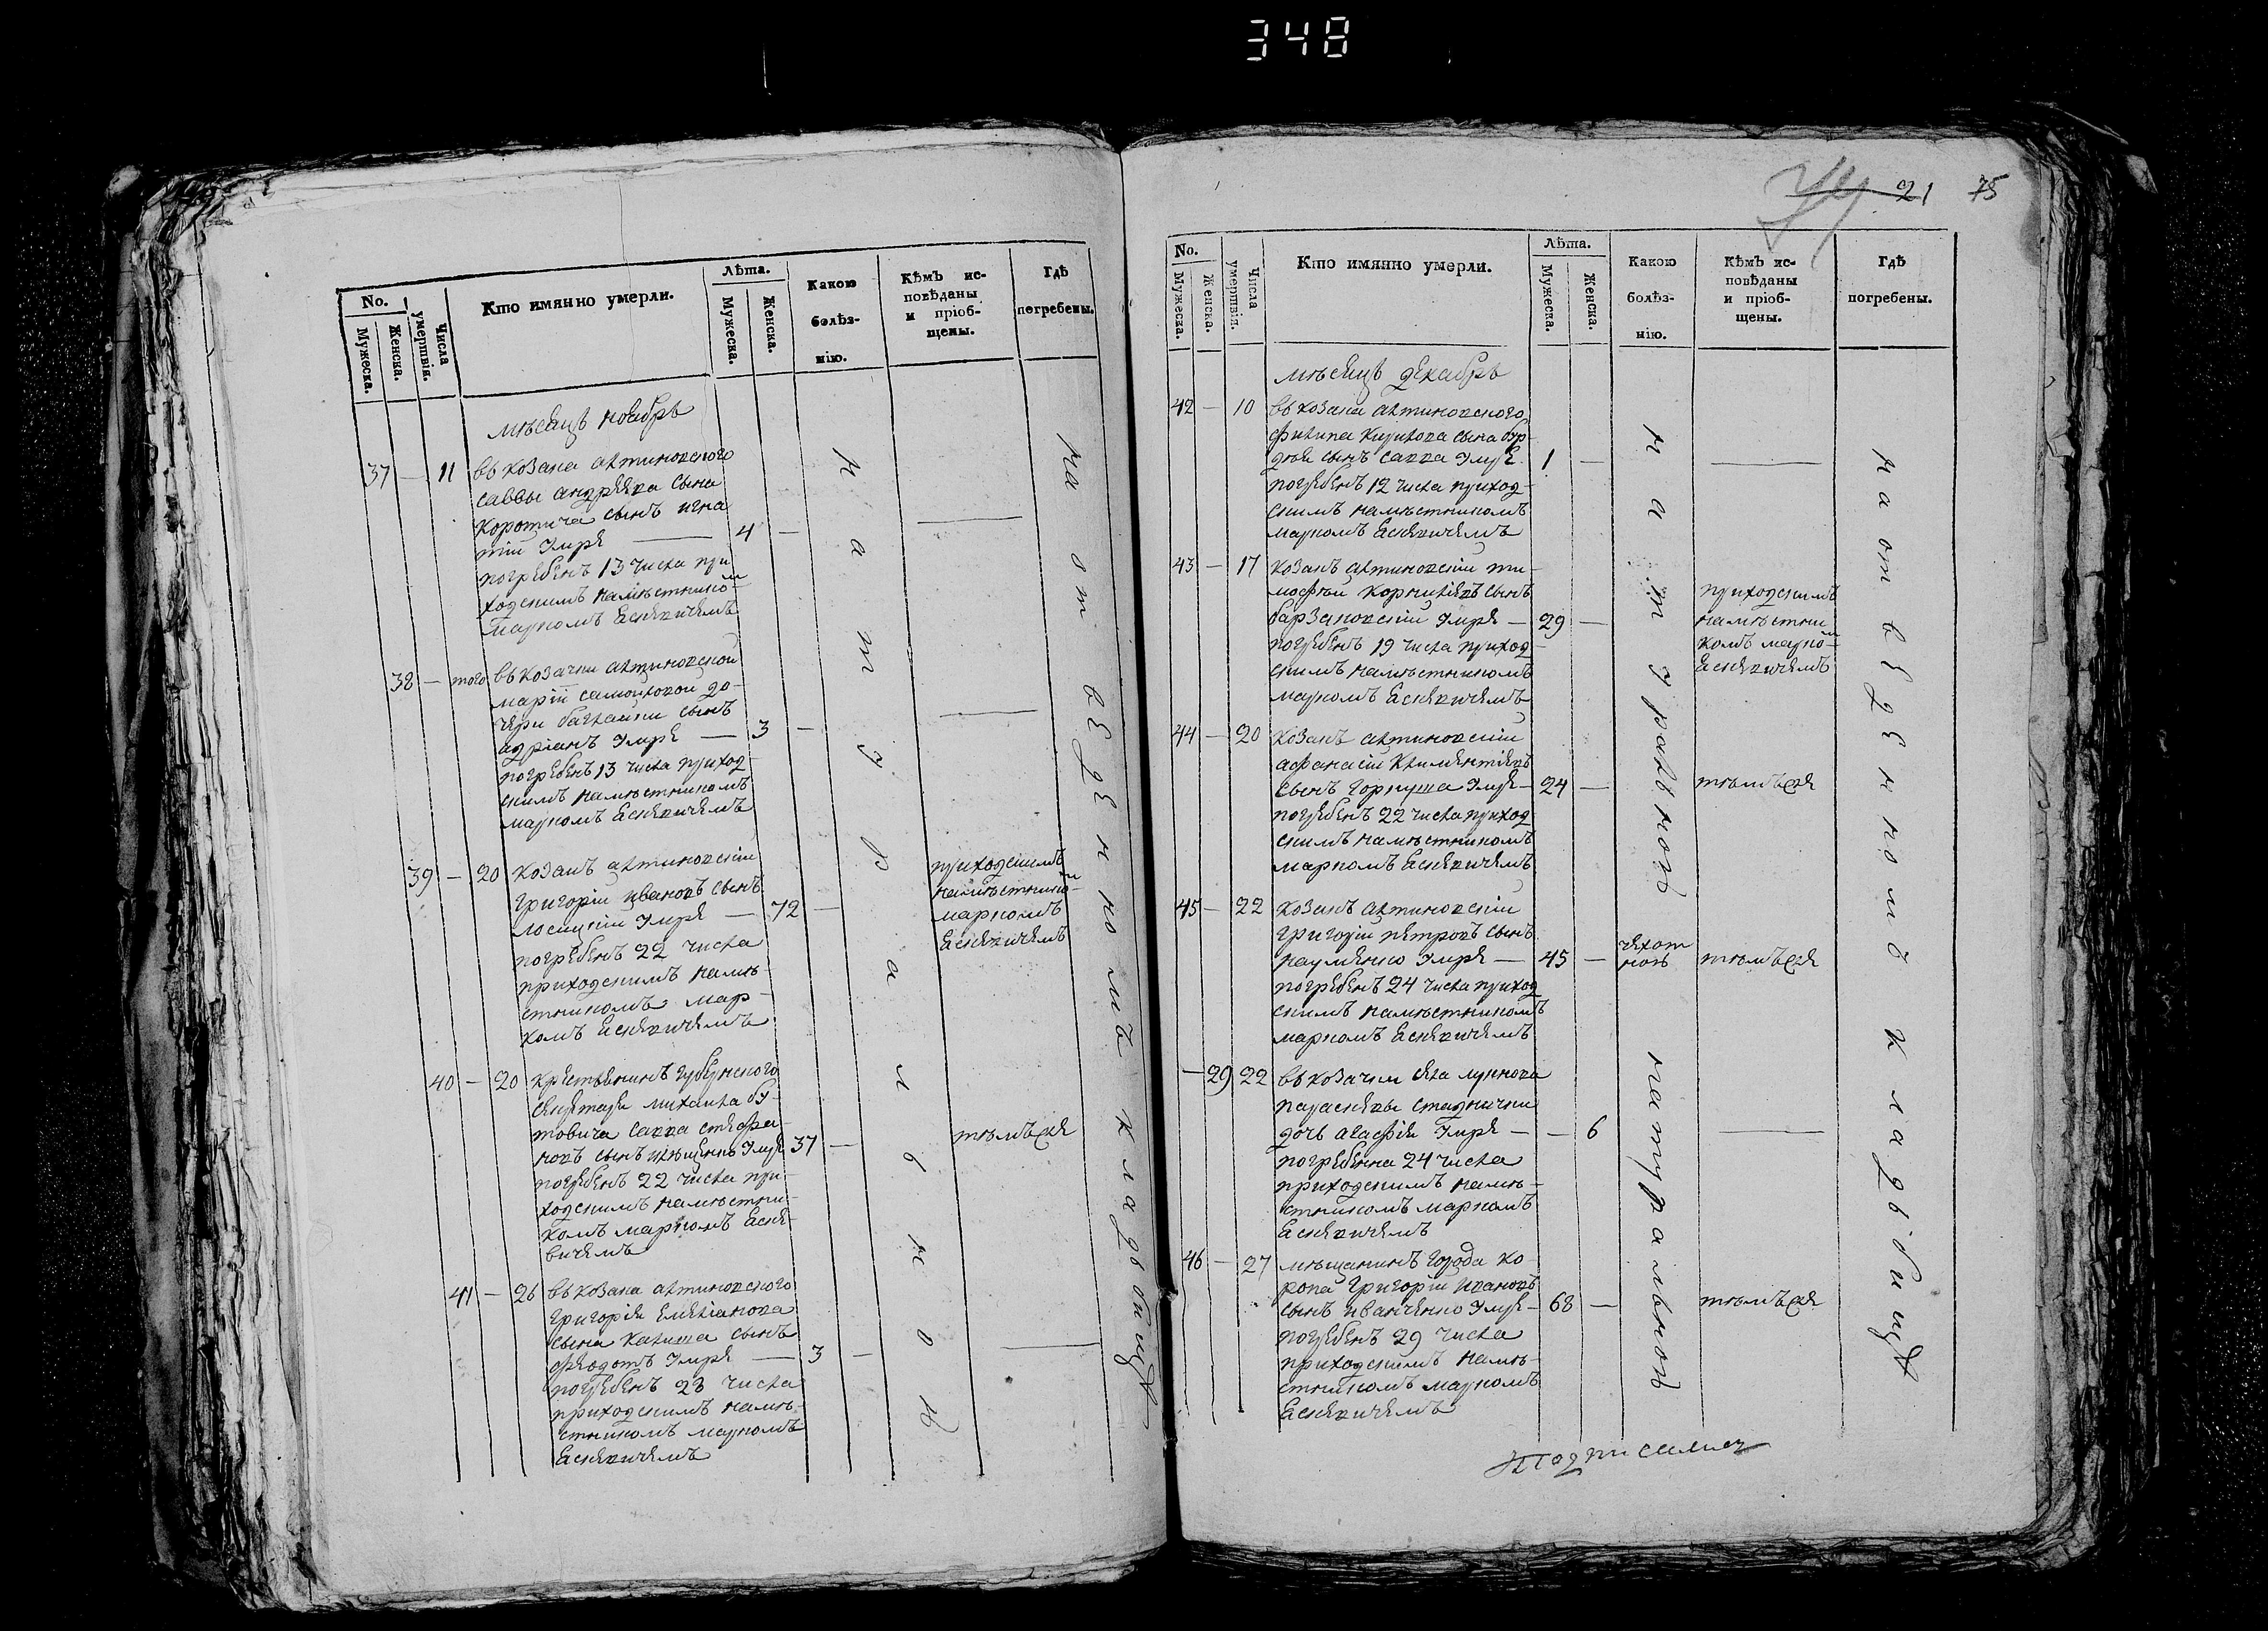 348
No.
Мужеска.
Женска.
Числа умертвія.
Кто имянно умерли.
Лѣта.
Мужеска.
Женска.
Какою
болѣз-
нію.
Кѣмъ ис-
повѣданы
и пріоб-
щены.
Гдѣ
погребены.
мѣсяцъ ноябрь
37 — 11 въ козака алтиновского
саввы андреева сына
коротича сынъ игна
тій умре — 4 —
погребенъ 13 числа при
ходскимъ намѣстнико
марком Есиевичемъ
38 — того въ козачки алтиновской
маріи самойловой до-
чери сынъ
адріанъ умре — 3 —
погребенъ 13 числа приход
скимъ намѣстникомъ
марком Есиевичемъ
39 — 20 козакъ алтиновскій
григорій ивановъ сынъ
лосицкій умре — 72 —
погребенъ 22 числа
приходскимъ намѣ-
стникомъ мар-
комъ Есиевичемъ
приходскимъ
намѣстнико
маркомъ
Есиевичемъ
40 — 20 крестьянинъ губернского
секретаря михаила бу-
товича савва стефа-
новъ сынъ умре 37 —
погребенъ 22 числа при-
ходскимъ намѣстни-
комъ маркомъ Есие-
вичемъ
тѣмъже
41 — 26 въ козака алтиновского
григорія Емелянова
сына калиша сынъ
феодотъ умре — 3 —
погребенъ 28 числа
приходскимъ намѣ-
стником марком
Есиевичемъ
натуральною
на отведенномъ кладбищѣ
21 75
No.
Мужеска.
Женска.
Числа умертвія.
Кто имянно умерли.
Лѣта.
Мужеска.
Женска.
Какою
болѣз-
нію.
Кѣмъ ис-
повѣданы
и пріоб-
щены.
Гдѣ
погребены.
мѣсяцъ декабрь
42 — 10 въ козака алтиновского
филипа кирилова сына бур-
дѣя сынъ савва умре 1 —
погребенъ 12 числа приход
скимъ намѣстником
марком Есиевичемъ
43 — 17 козакъ алтиновскій ти-
мофѣй корнилиевъ сынъ
барзаковскій умре — 29 —
погребенъ 19 числа приход-
скимъ намѣстником
марком Есиевичемъ
приходскимъ
намѣстни
комъ марко
Есиевичемъ
44 — 20 козакъ алтиновскій
афанасій климентіевъ
сынъ горкуша умре — 24 —
погребенъ 22 числа приход
скимъ намѣстникомъ
маркомъ Есиевичемъ
тѣмъже
45 — 22 козакъ алтиновскій
григорій петровъ сынъ
науменко умре — 45 —
погребенъ 24 числа приход
скимъ намѣстникомъ
маркомъ Есиевичемъ
чахот
ною
тѣмъже
— 29 22 въ козачки села
парасковы стаднички
дочь агафія умре — — 6
погребенна 24 числа
приходскимъ намѣ-
стником марком
Есиевичемъ
46 — 27 мѣщанинъ города ко-
ропа григорій ивановъ
сынъ иванченко умре — 68 —
погребенъ 29 числа
приходскимъ намѣ-
стником марком
Есиевичемъ
тѣмъже
натуральною
натуральною
на отведенномъ кладбищѣ